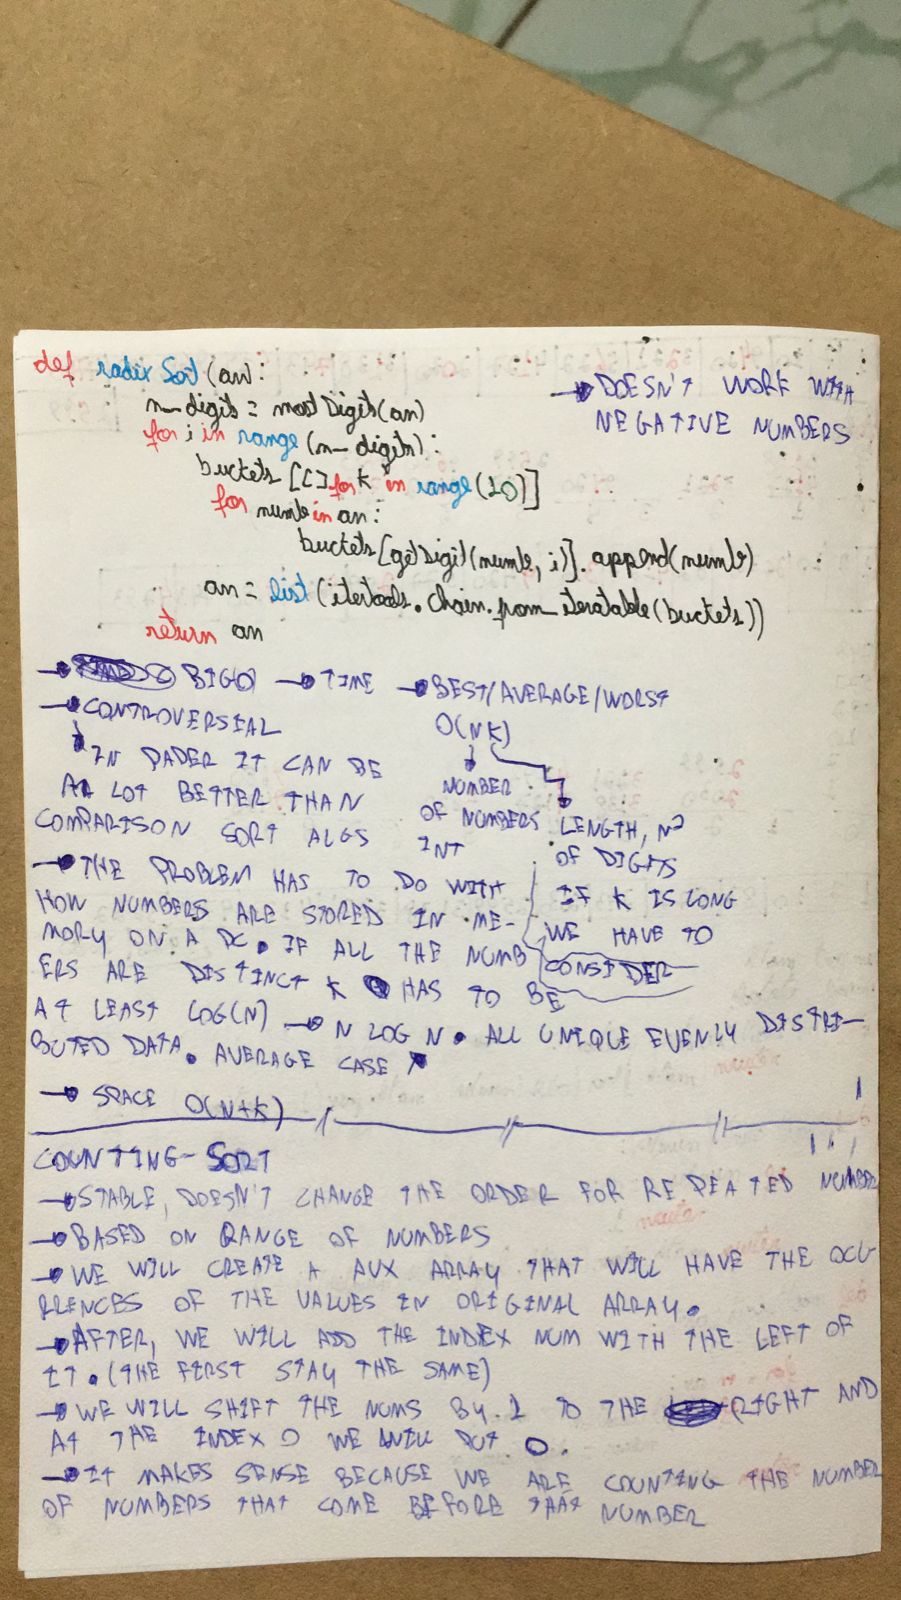 def radix Sort (arr:
→ DOESN'T WORK WITH
NEGATIVE NUMBERS
n_digits = mostDigits(arr)
for i in range (n_digits):
buckets [[] for k in range(10)]
for numbr in arr:
buckets[getDigit(numbr, i)].append(numbr)
arr = list (itertools.chain.from_iteratable(buckets))
return arr
→ BIGO → TIME → BEST/AVERAGE/WORST
O(NK)
NUMBER
OF NUMBERS
INT
LENGTH, Nº
OF DIGITS
IF K IS LONG
WE HAVE TO
CONSIDER
→ CONTROVERSIAL
IN PAPER IT CAN BE
A LOT BETTER THAN
COMPARISON SORT ALGS
→ THE PROBLEM HAS TO DO WITH
HOW NUMBERS ARE STORED IN ME-
MORY ON A PC. IF ALL THE NUMB
ERS ARE DISTINCT K HAS TO BE
AT LEAST LOG(N) → N LOG N. ALL UNIQUE EVENLY DISTRI-
BUTED DATA. AVERAGE CASE ↗
→ SPACE O(N+K)
COUNTING-SORT
→ STABLE, DOESN'T CHANGE THE ORDER FOR REPEATED NUMBER
→ BASED ON RANGE OF NUMBERS
→ WE WILL CREATE A AUX ARRAY THAT WILL HAVE THE OCU
RRENCES OF THE VALUES IN ORIGINAL ARRAY.
→ AFTER, WE WILL ADD THE INDEX NUM WITH THE LEFT OF
IT. (THE FIRST STAY THE SAME)
→ WE WILL SHIFT THE NUMS BY 1 TO THE RIGHT AND
AT THE INDEX 0 WE WILL PUT 0.
→ IT MAKES SENSE BECAUSE WE ARE COUNTING THE NUMBER
OF NUMBERS THAT COME BEFORE THAT NUMBER